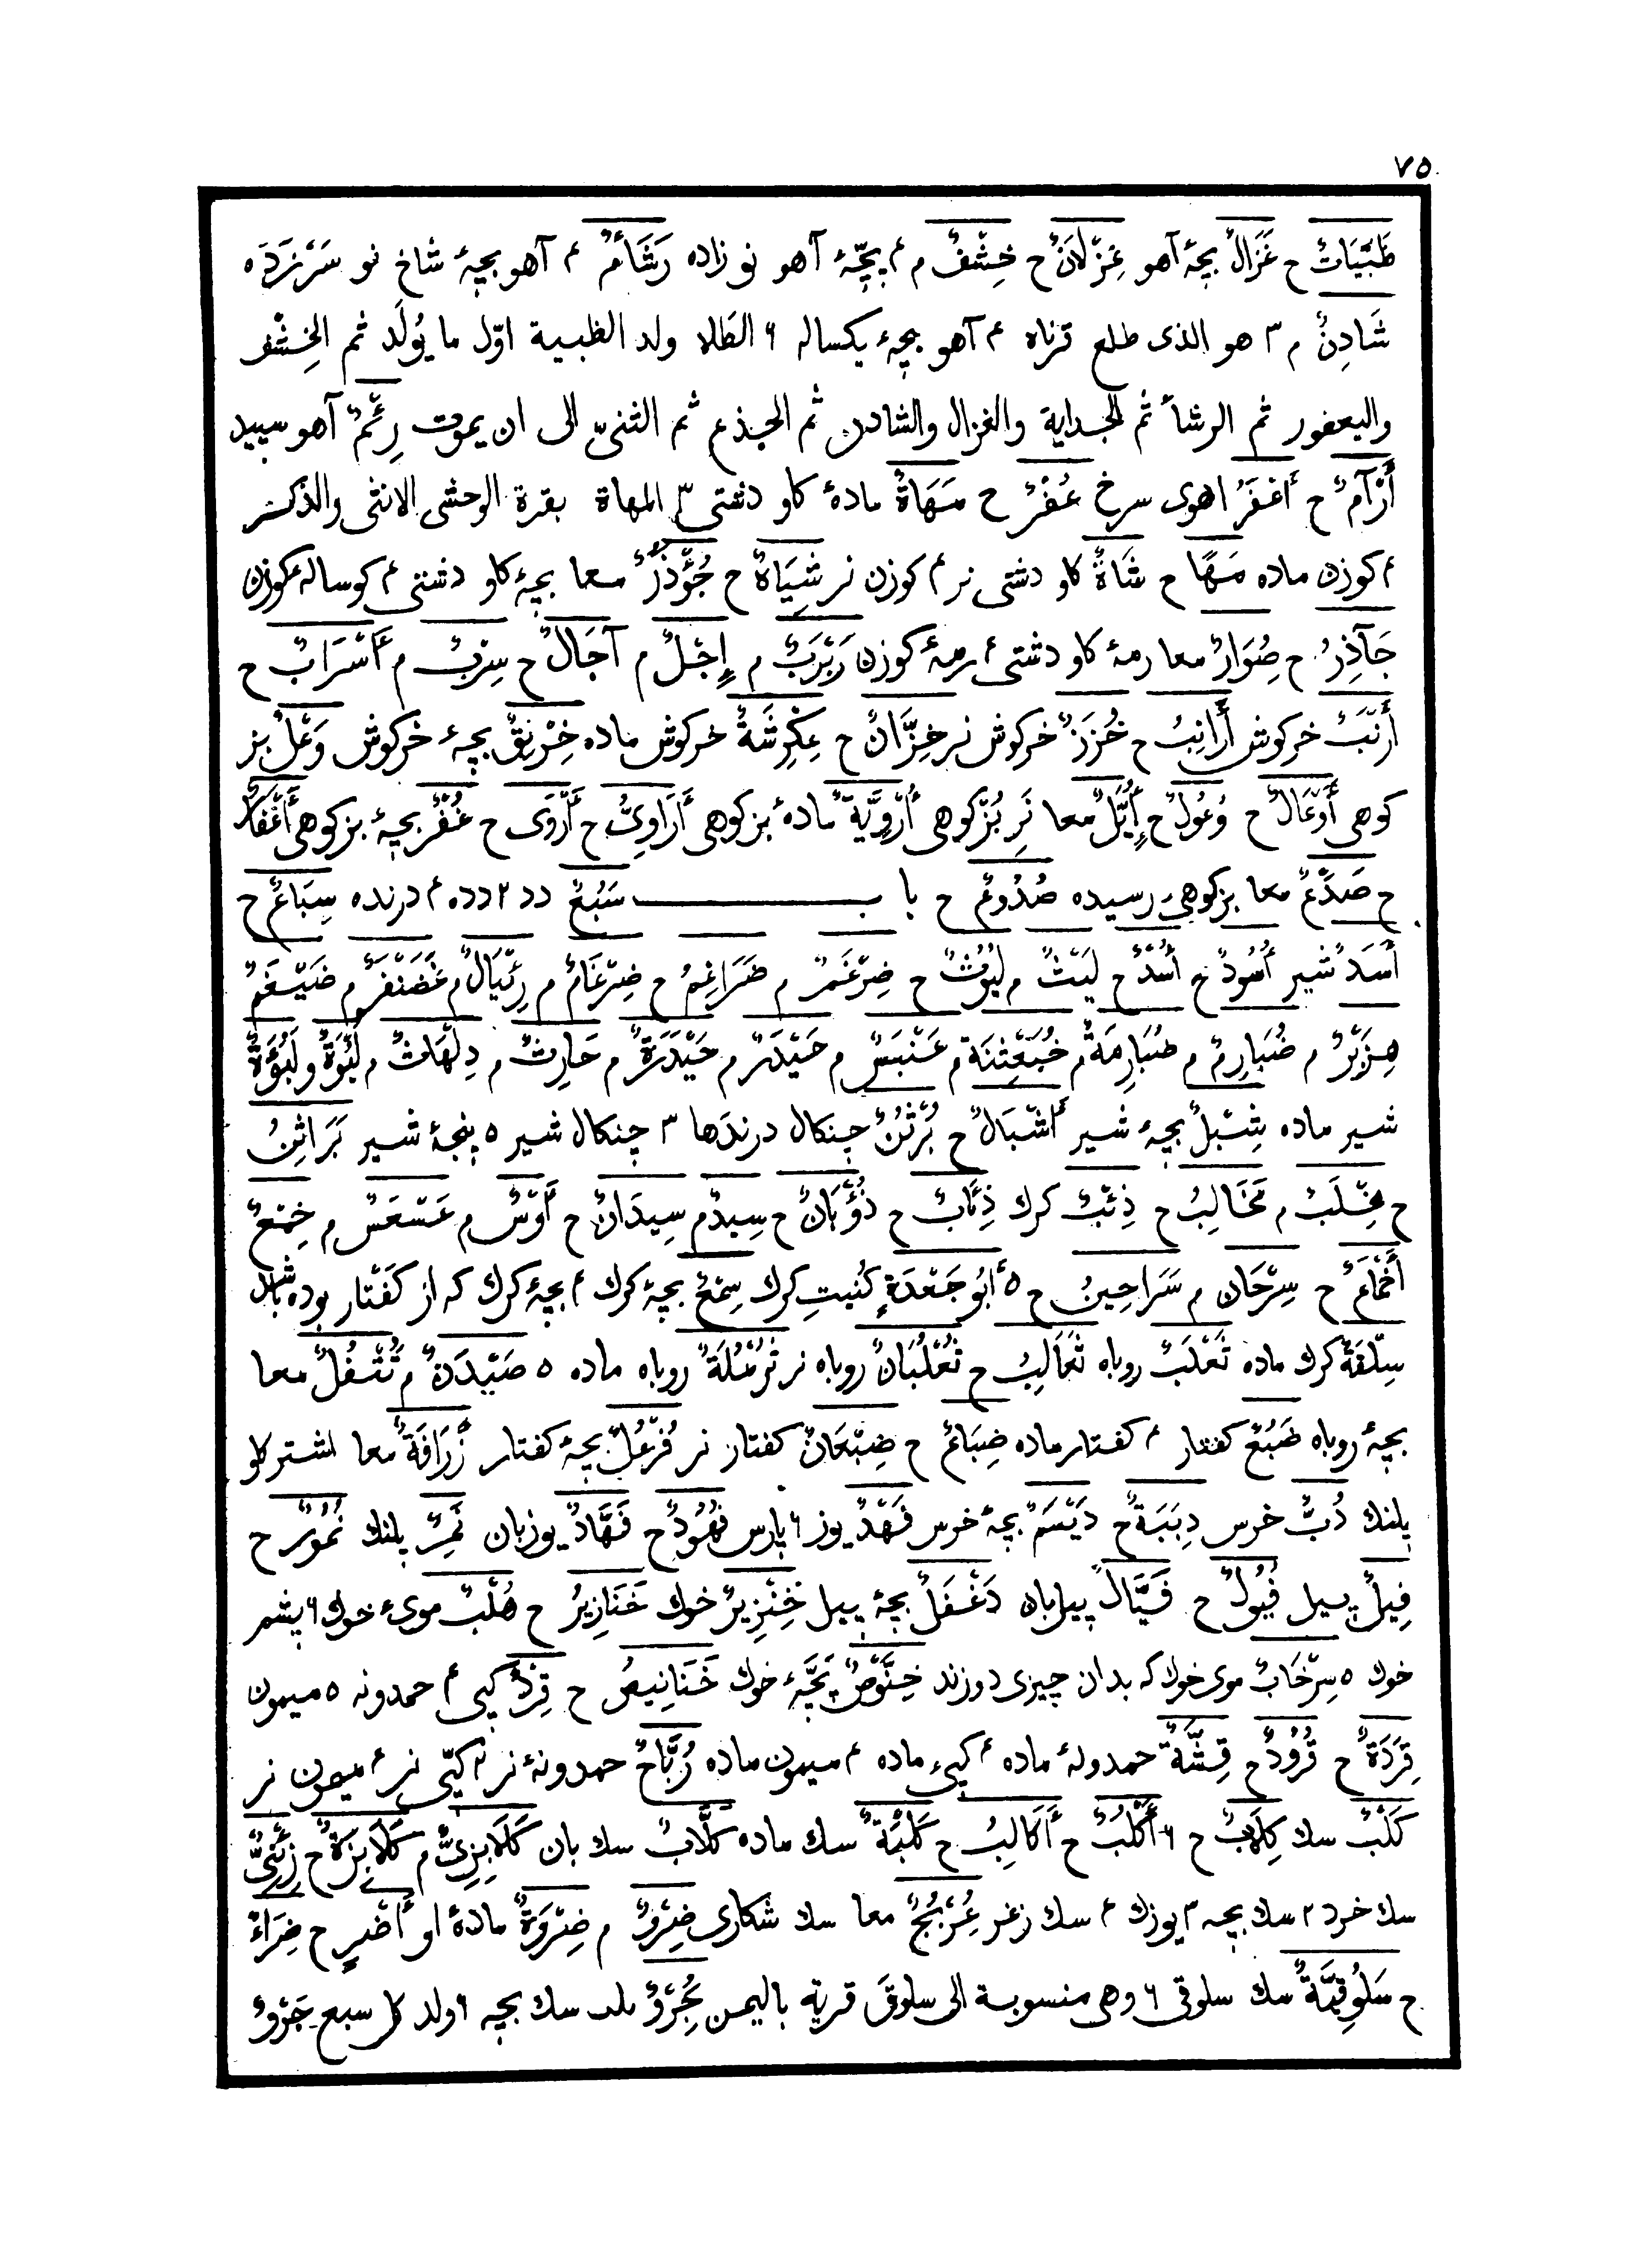 ٧٥
ظَبَيَاتٌ ح غَزَالٌ بچۀ آهو غِزْلَانٌ ح خِشْفٌ م ۴ بچّۀ آهو نو زاده رَشَأٌ م ۴ آهو بچۀ شاخ نو سَرْ زَدَه
شَادِنٌ م ٣ هو الذی طلع قرناه ۴ آهو بچۀ یکساله ۶ الطَلا ولد الظبیة اوّل ما یُولَد ثم الخِشْف
والیعفور ثم الرشأ ثم الجدایة والغزال والشادن ثم الجذع ثم الثنیّ الی ان یموت رِئْمٌ آهو سپید
أَرْآمٌ ح أَعْفَرُ اهوی سرخ عُفْرٌ ح مَهَاةٌ مادۀ کاو دشتی ٣ المهاة بقرة الوحشی الانثی والذکر
۴ کوزن ماده مَهًا ح شَاةٌ کاو دشتی نر ۴ کوزن نر شِیَاهٌ ح جُؤْذَرٌ معا بچۀ کاو دشتی ۴ کوسالۀ کوزن
جَآذِرُ ح صُوَارٌ معا رمۀ کاو دشتی ۴ رمۀ کوزن رَبْرَبٌ م إِجْلٌ م آجَالٌ ح سِرْبٌ م أَسْرَابٌ ح
أَرْنَبٌ خرکوش أَرَانِبُ ح خُزَزٌ خرکوش نر خِزَّانٌ ح عِکْرِشَةٌ خرکوش ماده خِرْنِقٌ بچۀ خرکوش وَعْلٌ بز
کوهی أَوْعَالٌ ح وُعُولٌ ح إِیَّلٌ معا نَرِ بُزْ کوهی أُرْوِیَّةٌ مادۀ بز کوهی أَرَاوِیُّ ح أَرْوَی ح غُفْرٌ بچۀ بز کوهی أَغْفَارٌ
ح صَدَعٌ معا بز کوهی رسیده صُدُوعٌ ح باب سَبُعٌ دد ٢ دده ۴ درنده سِبَاعٌ ح
أَسَدٌ شیر أُسُودٌ ح أُسْدٌ ح لَیْثٌ م لُیُوثٌ ح ضِرْغَمٌ م ضَرَاغِمُ ح ضِرْغَامٌ م رِئْبَالٌ م غَضَنْفَرٌ م ضَیْغَمٌ
هِزَبْرٌ م ضُبَارِمٌ م ضُبَارِمَةٌ م خُبَعْثِنَةٌ م عَنْبَسٌ م حَیْدَرٌ م حَیْدَرَةٌ م حَارِثٌ م دِلْهَاثٌ م لَبْوَةٌ و لَبُؤَةٌ
شیر ماده شِبْلٌ بچۀ شیر أَشْبَالٌ ح بُرْثُنٌ چنکال درندها ٣ چنکال شیر ۵ پنجۀ شیر بَرَاثِنُ
ح مِخْلَبٌ م مَخَالِبُ ح ذِئْبٌ کرك ذِئَابٌ ح ذُؤْبَانٌ ح سِیدٌ م سِیدَانٌ ح أَوْسٌ م عَسْعَسٌ م خِمْعٌ
أَخْمَاعٌ ح سِرْحَان م سَرَاحِینُ ح ۵ أَبُو جَعْدَةٍ کُنیتِ کرك سِمْعٌ بچۀ کرك ۴ بچۀ کرك که از کَفْتار بوده باشد
سِلْقَةٌ کرك ماده ثَعْلَبٌ روباه ثَعَالِبُ ح ثُعْلُبَانٌ روباه نر ثُرْمُلَةٌ روباه ماده ۵ صَیْدَنٌ م تُتْفُلٌ معا
بچۀ روباه ضَبُعٌ کفتار ۴ کفتار ماده ضِبَاعٌ ح ضِبْعَانٌ کفتار نر فُرْعُلٌ بچۀ کفتار زُرَافَةٌ معا اشتر کاو
پلنك دُبٌّ خرس دِبَبَةٌ ح دَیْسَمٌ بچۀ خرس فَهْدٌ یوز ۶ پارس فُهُودٌ ح فَهَّادٌ یوزبان نَمِرٌ پلنك نُمُورٌ ح
فِیلٌ پیل فُیُولٌ ح فَیَّالٌ پیلبان دَغْفَلٌ بچۀ پیل خِنْزِیرٌ خوك خَنَازِیرُ ح هُلْبٌ موی خوك ۶ پشم
خوك ۵ سِرْخَابٌ موی خوك که بدان چیزی دوزند خِنَّوْصٌ بَچَّۀ خوك خَنَانِیصُ ح قِرْدٌ کپی ۴ حمدونه ۵ میمون
قِرَدَةٌ ح قُرُودٌ ح قِشَّةٌ حمدونۀ ماده ۴ کپیء ماده ۴ میمون ماده رُبَّاحٌ حمدونۀ نر ٢ کپّی نر ۴ میمون نر
کَلْبٌ سك کِلَابٌ ح ۶ أَکْلُبٌ ح أَکَالِبُ ح کَلْبَةٌ سك ماده کَلَّابٌ سك بان کَلَابِزِیٌّ م کَلَابِزَةٌ ح زِئْنِیٌّ
سك خرد ٢ سك بچه ٣ یوزك ۴ سك زغر عُرْبُجٌ معا سك شکاری ضِرْوٌ م ضِرْوَةٌ مادۀ او أَضْرٍ ح ضِرَاءٌ
ح سَلُوقِیَّةٌ سك سلوقی ۶ وهی منسوبة الی سلوقَ قریة بالیمن جُِرْوٌ سك بچه ۶ ولد کل سبع جَرْوٌ